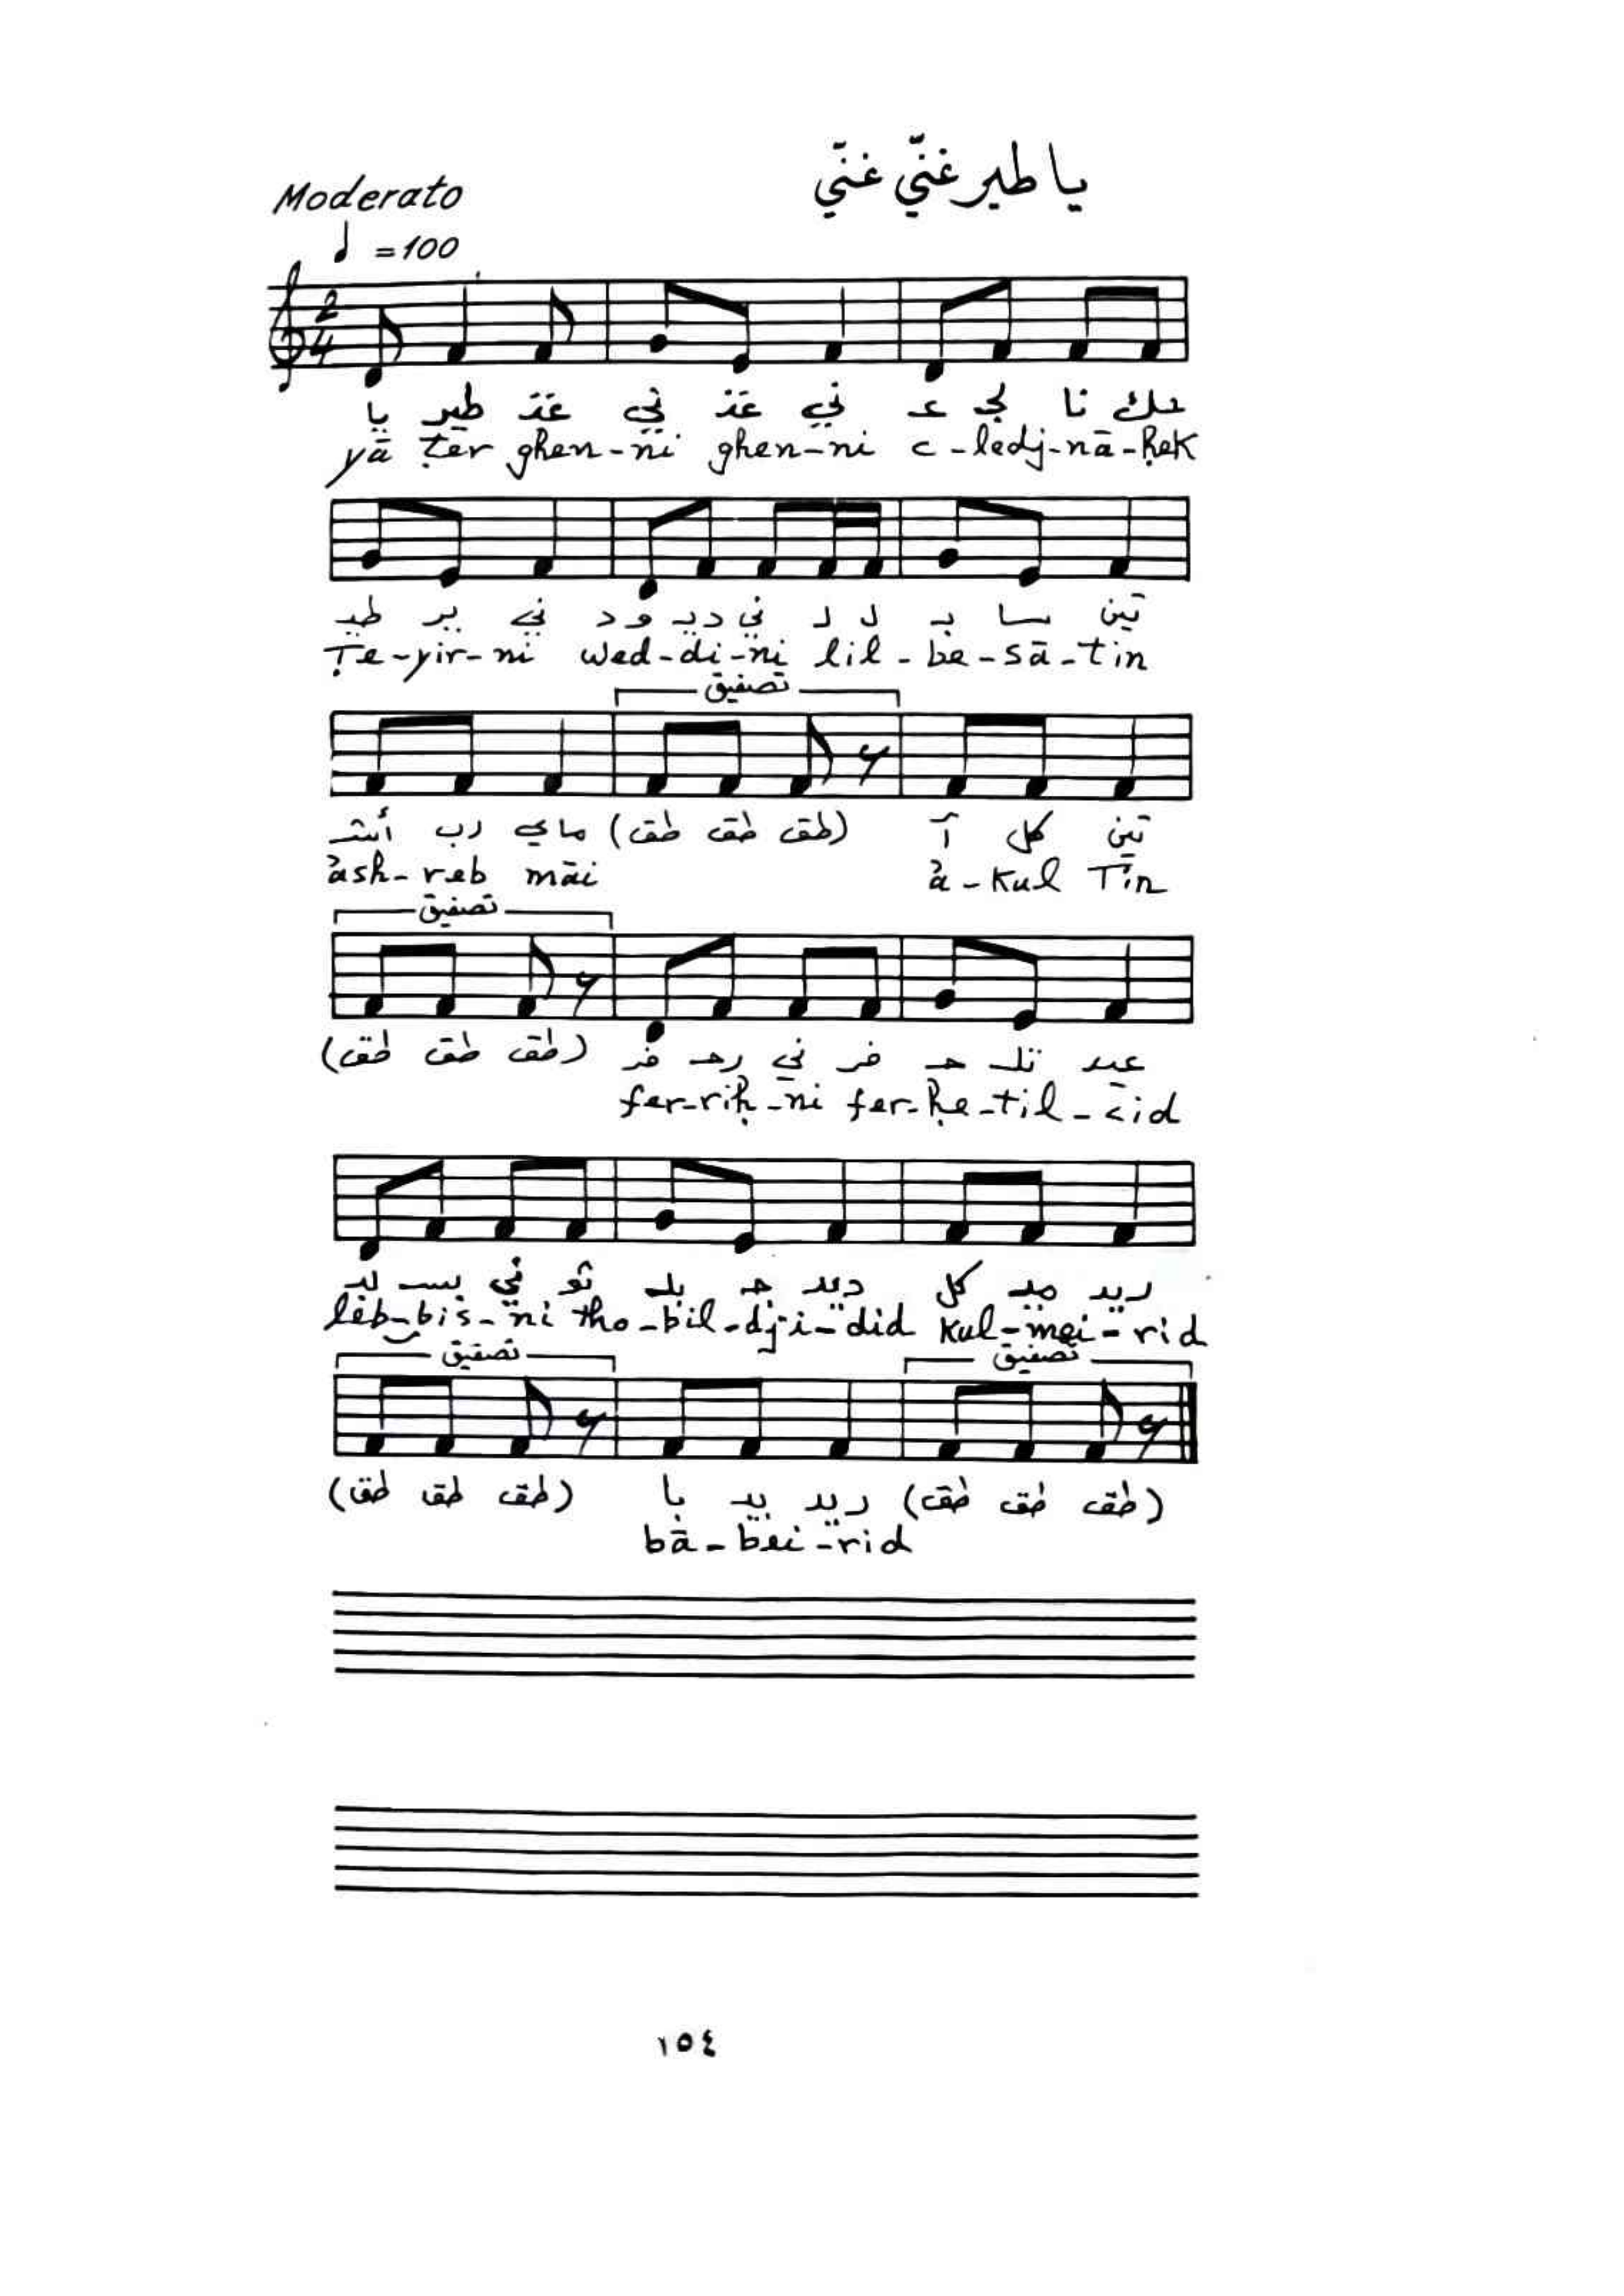 يا طير غنّي غنّي
Moderato
♩ =100
2/4
يا طير غنـ ني غنـ ني عـ لجـ نا حك
yā ṭēr ghen-ni ghen-ni c-ledj-nā-ḥek
طيـ ير ني ود ديـ ني لـ لـ بـ سا تين
Ṭe-yir-ni wed-di-ni lil-be-sā-tin
تصفيق
أشـ رب ماي (طق طق طق) آ كل تين
àsh-reb māi à-kul Tīn
تصفيق
(طق طق طق) فر رحـ ني فر حـ تلـ عيد
fer-riḥ-ni fer-ḥe-til-cid
لبـ بسـ ني ثو بلـ جـ ديد كل ميـ ريد
leb-bis-ni tho-bil-dj-i-did kul-mei-rid
تصفيق تصفيق
(طق طق طق) با بيـ ريد (طق طق طق)
bā-bei-rid
١٥٤